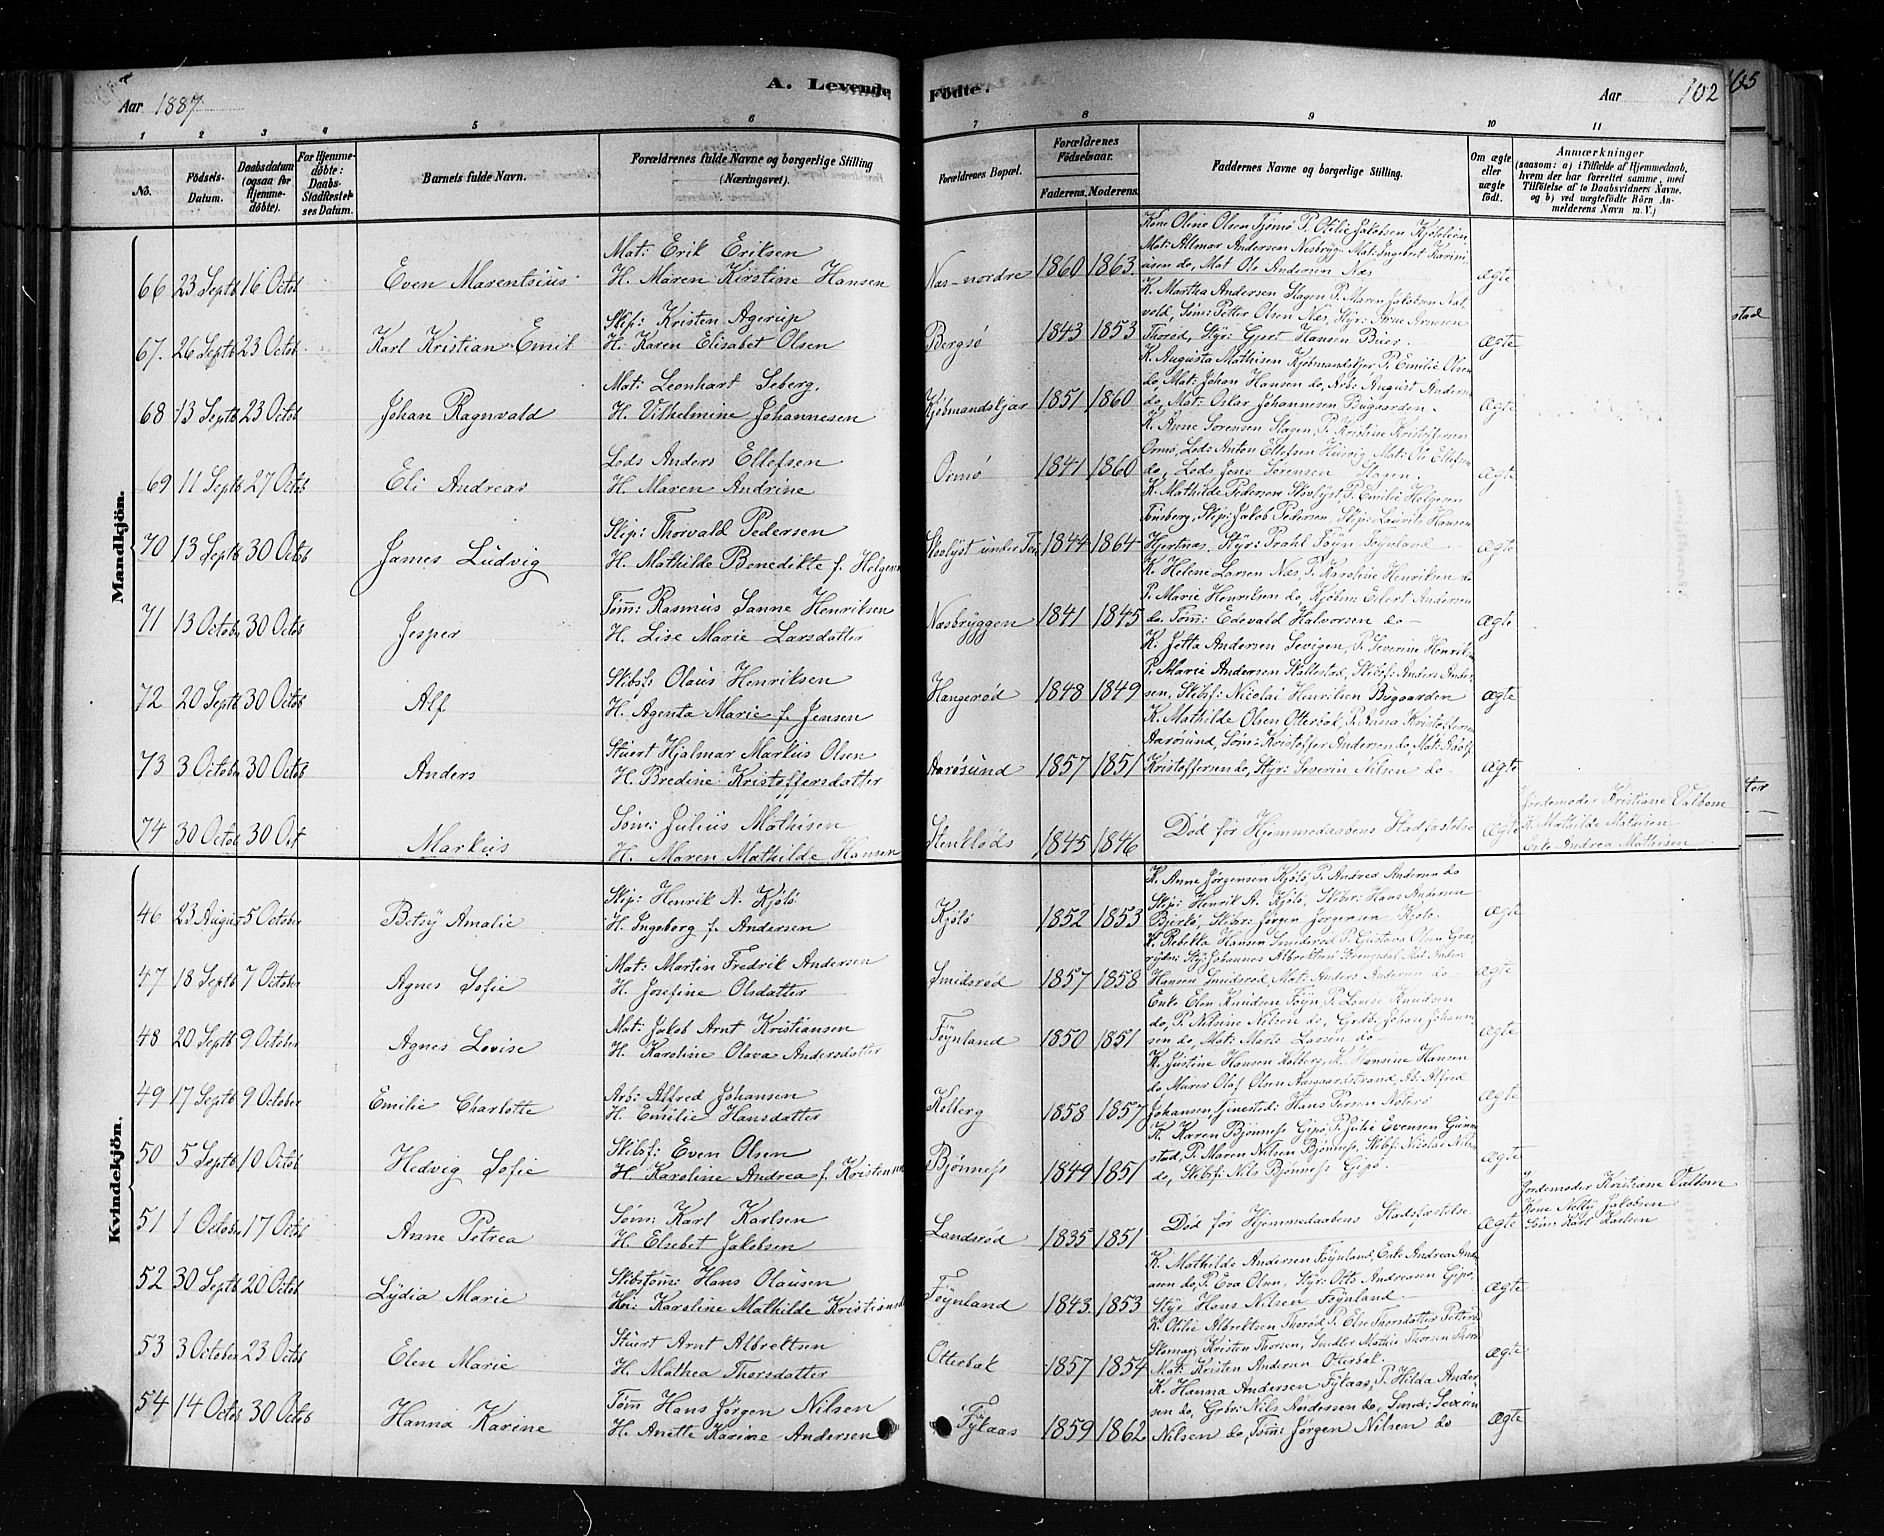 Aar 1887.
A. Levende Födte.
Aar 102
105
1 2 3 4 5 6 7 8 9 10 11
No. Födsels-Datum. Daabsdatum (ogsaa for Hjemme-döbte). For Hjemme-döbte: Daabs-Stadfæstelses Datum. Barnets fulde Navn. Forældrenes fulde Navne og borgerlige Stilling (Næringsvei). Forældrenes Bopæl. Forældrenes Födselsaar. Faderens. Moderens. Faddernes Navne og borgerlige Stilling. Om ægte eller uægte födt. Anmærkninger (saasom: a) i Tilfælde af Hjemmedaab, hvem der har forrettet samme, med Tilföielse af to Daabsvidners Navne, og b) ved uægtefödte Börn Anmelderens Navn m. V.)
Mandkjön.
Kone Oleno Olsen Tjømø P. Otilie Jakobsen
Mat: Erik Eriksen
Mat: Altmar Andersen Nesbryg. Mat: Ingebret
66 23 Septb 16 Octob Even Marentsius H. Maren Kirstine Hansen Næs nordre 1860 1863 do, Mat Ole Andersen Næs ægte
K. Martha Andersen Slagen P. Maren Jakobsen
Skip: Kristen Agerup
Søm: Petter Olsen Næs, Styr: Arne Arnesen
67. 26 Septb 23 Octob Karl Kristian Emil H. Karen Elisabet Olsen Bergsø 1843 1853 Thorød, Styr: Gjert Hansen Buer ægte
K. Augusta Mathisen Kjøbmandskjær P. Emilie Olsen
Mat: Leonhart Seberg.
do, Mat: Johan Hansen do, Arb: August
68 13 Septb 23 Octob Johan Ragnvald H. Vilhelmine Johannesen Kjøbmandskjær 1851 1860 do, Mat: Oskar Johannesen Bugaarden ægte
K. Anne Sørensen Slagen, P. Kristine Kristoffersen
Lods Anders Ellefsen
Ormø, Lods Anton Ellefsen Husvig, Mat: Ole Ellefsen
69 11 Septb 27 Octob Eli Andreas H. Maren Andrine Ormø 1841 1860 do, Lods Jens Sørensen Slagen. ægte
K. Mathilde Pedersen Skovlyst P. Emilie Helgesen
Skip: Thorvald Pedersen
Tønsberg, Skip: Jakob Pedersen, Skip: Laurits Hansen
70 13 Septb 30 Octob James Ludvig H. Mathilde Benedikte f. Helgesen Skovlyst under 1844 1864 Hjertnæs, Styr: Prahl Føyn Føynland ægte
K. Helene Larsen Næs, P. Karoline Henriksen do
Tømm: Rasmus Sanne Henriksen
P. Marie Henriksen do, Kjøbm: Eilert Andersen
71 13 October 30 Octob Jesper H. Lise Marie Larsdatter Næsbryggen 1841 1845 do. Tømm: Edevald Halvorsen do ægte
K. Jetta Andersen P. Severine Henriksen
Skibsf: Olaus Henriksen
P. Marie Andersen Skallestad, Skibsf: Anders Andersen
72 20 Septb 30 Octob Alf H. Agenta Marie f. Jensen Haugerød 1848 1849 Skibsf: Nicolai Henriksen Bugaarden ægte
K. Mathilde Olsen Otterbæk, P. Anna Kristoffersen
Stuert Hjalmar Markus Olsen
Aarøsund, Søm: Kristoffer Andersen do, Mat: Adolf
73 3 October 30 Octob Anders H. Bredine Kristoffersdatter Aarøsund 1857 1851 Kristoffersen do, Styr: Severin Nilsen do ægte
Jordemoder Kristiane Valbom
74 30 Octob 30 Oct Markus Søm: Julius Mathisen Stenkløds 1845 1846 Død før Hjemmedaabens Stadfæstelse ægte K. Mathilde Mathisen
H. Maren Mathilde Hansen
Enke Andrea Mathisen
Kvindekjön.
K. Anne Jørgensen Kjøló P. Andrea Andersen do
Skip: Henrik A. Kjøló
Skip: Henrik A. Kjøló, Skibsr: Hans Andersen
46 23 August 5 October Betsy Amalie H. Ingeborg f. Andersen Kjøló 1852 1853 Bjerkø, Skibsr: Jørgen Jørgensen Kjøló. ægte
K. Rebekka Hansen Smidsrød P. Gustava Olsen
Mat: Martin Fredrik Andersen
Styr: Johannes Albretsen
47 18 Septb 7 October Agnes Sofie H. Josefine Olsdatter Smidsrød 1857 1858 Hansen Smidsrød, Mat: Anders Andersen do ægte
Enke Elen Knudsen Føyn P. Lovise Knudsen
Mat: Jakob Arnt Kristiansen
do, P. Nilsine Nilsen do, Johan
48 20 Septb 9 October Agnes Lovise H. Karoline Olava Andersdatter Føynland 1850 1851 do, Mat: Larsen do ægte
K. Justine Hansen Kolberg, K. Hansine Hansen
Arb: Alfred Johansen
do Murer Olaf Olsen Aasgaardstrand, Ab. Alfred
49 17 Septb 9 October Emilie Charlotte H. Emilie Hansdatter Kolberg 1858 1857 Johansen Hans Persen Nøterø ægte
K. Karen Bjønness Gipø P. Julie Evensen
Skibsf: Even Olsen
P. Maren Nilsen Bjønness, Skibsf: Nicolai
50 5 Septb 10 Octob Hedvig Sofie H. Karoline Andrea f. Kristensen Bjønness 1849 1851 do, Skibsf: Nils Bjønness Gipø. ægte
Jordemoder Kristiane Valbom
Kone Netty Jakobsen
51 1 October 17 Octob Anne Petrea Søm: Karl Karlsen Landsrød 1835 1851 Død før Hjemmedaabens Stadfæstelse ægte Søm: Karl Karlsen
H. Elsebet Jakobsen
K. Mathilde Andersen Føynland, Enke Andrea
Skibstøm: Hans Olausen
do, P. Eva Olsen, Styr: Otto Andreasen Gipø,
52 30 Septb 20 Octob Lydia Marie H: Karoline Mathilde Kristiansd Føynland 1843. 1853 Styr Hans Nilsen Føynland. ægte
K. Otilie Albretsen Thorød P. Else Thorsdatter
Stuert Arnt Albretsen
Kristen Thorsen, Snedker Mathis Thorsen
53 3 October 23 Octob Elen Marie H. Mathea Thorsdatter Otterbæk 1857 1854 Mat: Kristen Andersen Otterbæk. ægte
K. Hanna Andersen Fylaas, P. Hilda Ander-
Tømm Hans Jørgen Nilsen
sen do, Grbr: Nils Andersen do, Smed: Severin
54 14 Octob 30 Octob Hanna Karine H. Anette Karine Andersen Fylaas 1859 1862 Nilsen do, Tøm: Jørgen Nilsen do ægte
stad